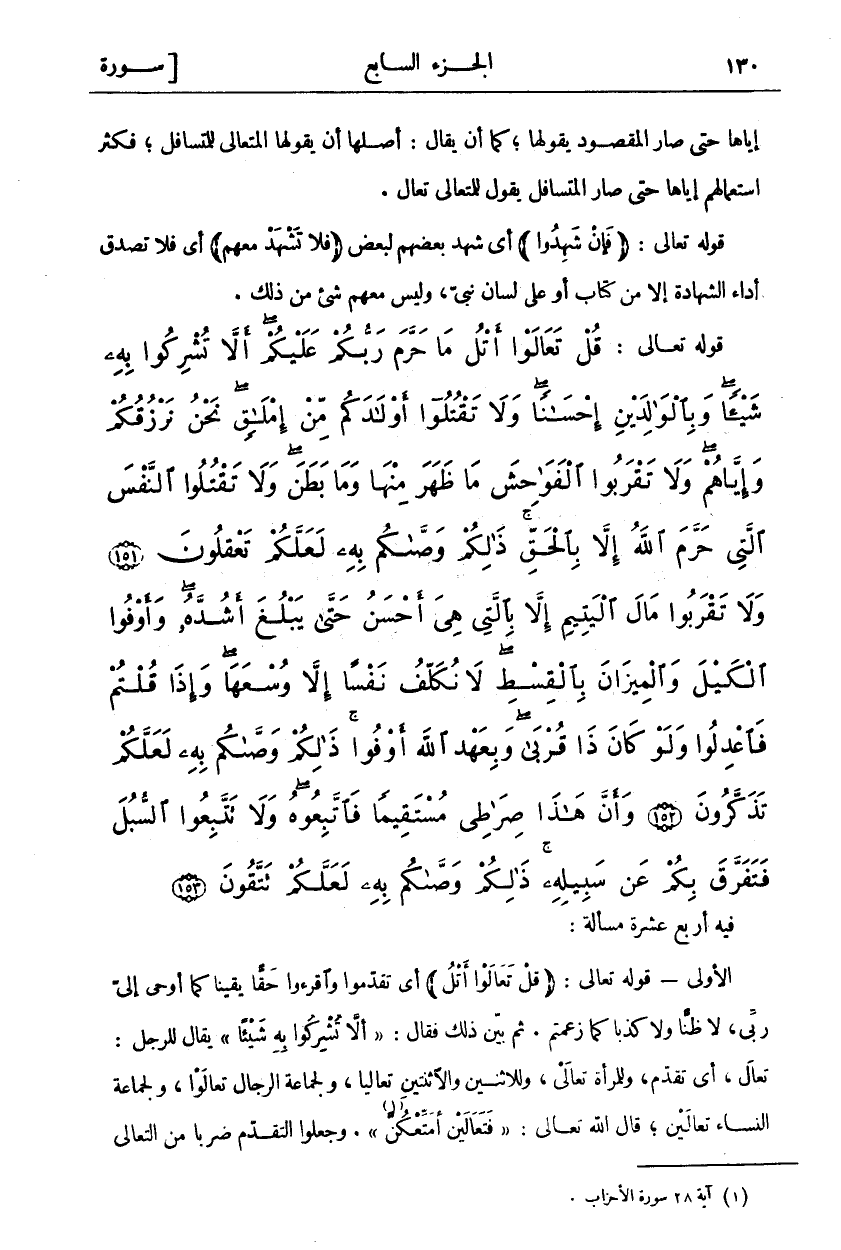 ١٣٠ الجـــزء السـابع [ســـورة
إياها حتى صار المقصـود يقولها ؛ كما أن يقال : أصـلها أن يقولها المتعالى للتسافل ؛ فكثر
استعمالهم إياها حتى صار المتسافل يقول للتعالى تعال .
قوله تعالى : ﴿ فَإِنْ شَهِدُوا ﴾ أى شهد بعضهم لبعض ﴿فلا تَشْهَدْ معهم﴾ أى فلا تصدق
أداء الشهادة إلا من كتاب أو على لسان نبىّ، وليس معهم شئ من ذلك .
قوله تعـالى : قُلْ تَعَالَوْا أَتْلُ مَا حَرَّمَ رَبُّكُمْ عَلَيْكُمْۖ أَلَّا تُشْرِكُوا بِهِۦ
شَيْـًٔاۖ وَبِٱلْوَٰلِدَيْنِ إِحْسَٰنًاۖ وَلَا تَقْتُلُوٓا أَوْلَٰدَكُم مِّنْ إِمْلَٰقٍۖ نَحْنُ نَرْزُقُكُمْ
وَإِيَّاهُمْۖ وَلَا تَقْرَبُوا ٱلْفَوَٰحِشَ مَا ظَهَرَ مِنْهَا وَمَا بَطَنَۖ وَلَا تَقْتُلُوا ٱلنَّفْسَ
ٱلَّتِى حَرَّمَ ٱللَّهُ إِلَّا بِٱلْحَقِّۚ ذَٰلِكُمْ وَصَّىٰكُم بِهِۦ لَعَلَّكُمْ تَعْقِلُونَ ۝١٥١
وَلَا تَقْرَبُوا مَالَ ٱلْيَتِيمِ إِلَّا بِٱلَّتِى هِىَ أَحْسَنُ حَتَّىٰ يَبْلُغَ أَشُدَّهُۥۖ وَأَوْفُوا
ٱلْكَيْلَ وَٱلْمِيزَانَ بِٱلْقِسْطِۖ لَا نُكَلِّفُ نَفْسًا إِلَّا وُسْعَهَاۖ وَإِذَا قُلْتُمْ
فَٱعْدِلُوا وَلَوْ كَانَ ذَا قُرْبَىٰۖ وَبِعَهْدِ ٱللَّهِ أَوْفُواۚ ذَٰلِكُمْ وَصَّىٰكُم بِهِۦ لَعَلَّكُمْ
تَذَكَّرُونَ ۝١٥٢ وَأَنَّ هَٰذَا صِرَٰطِى مُسْتَقِيمًا فَٱتَّبِعُوهُۖ وَلَا تَتَّبِعُوا ٱلسُّبُلَ
فَتَفَرَّقَ بِكُمْ عَن سَبِيلِهِۦۚ ذَٰلِكُمْ وَصَّىٰكُم بِهِۦ لَعَلَّكُمْ تَتَّقُونَ ۝١٥٣
فيه أربع عشرة مسألة :
الأولى — قوله تعالى : ﴿قُلْ تَعَالَوْا أَتْلُ﴾ أى تقدّموا وٱقرءوا حَقًّا يقينا كما أوحى إلىّ
ربّى، لا ظنًّا ولا كذبا كما زعمتم . ثم بيّن ذلك فقال : « أَلَّا تُشْرِكُوا بِهِ شَيْئًا » يقال للرجل :
تعالَ ، أى تقدّم، وللمرأة تعالَىْ ، وللاثنـين والٱثنتين تعاليا ، ولجماعة الرجال تعالَوْا ، ولجماعة
النسـاء تعالَيْن ؛ قال الله تعـالى : « فَتَعَالَيْنَ أُمَتِّعْكُنَّ (١) » . وجعلوا التقـدّم ضربا من التعالى
(١) آية ٢٨ سورة الأحزاب .